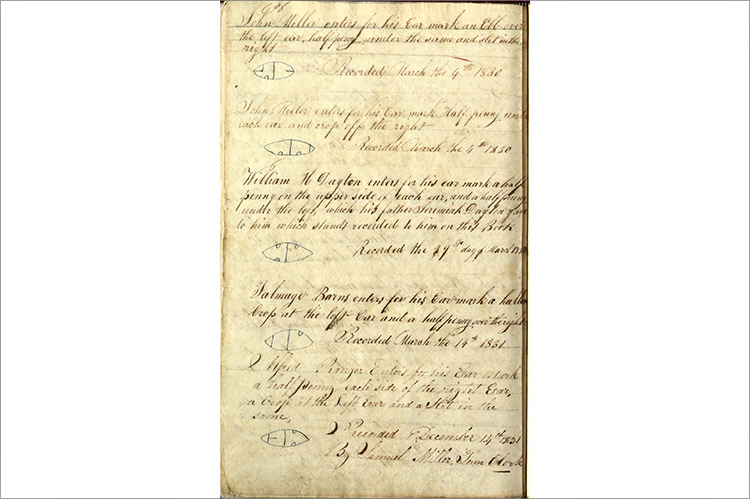 John Miller enters for his Ear mark an Ell over
the left ear, half peny under the same and slit in the
right
Recorded March the 4th 1830
John enters for his Ear mark Half penny
each ear and crop off the right
Recorded March the 4th 1830
William H Dayton enters for his ear mark a half
penny on the upper side of each ear, and a half penny
under the left, which his father Jeremiah Dayton
to him which stands recorded to him on this Book
Recorded the day of
Talmage Barns enters for his Ear mark a hallow
Crop at the left Ear and a half penny over the right
Recorded March the 14th 1831
Alfred Ranger Enters for his Ear Mark
a half penny each side of the right Ear,
a Crop at the Left Ear and a slit in the
same,
Recorded December 14th 1831
By Samuel Miller, Town Clerk